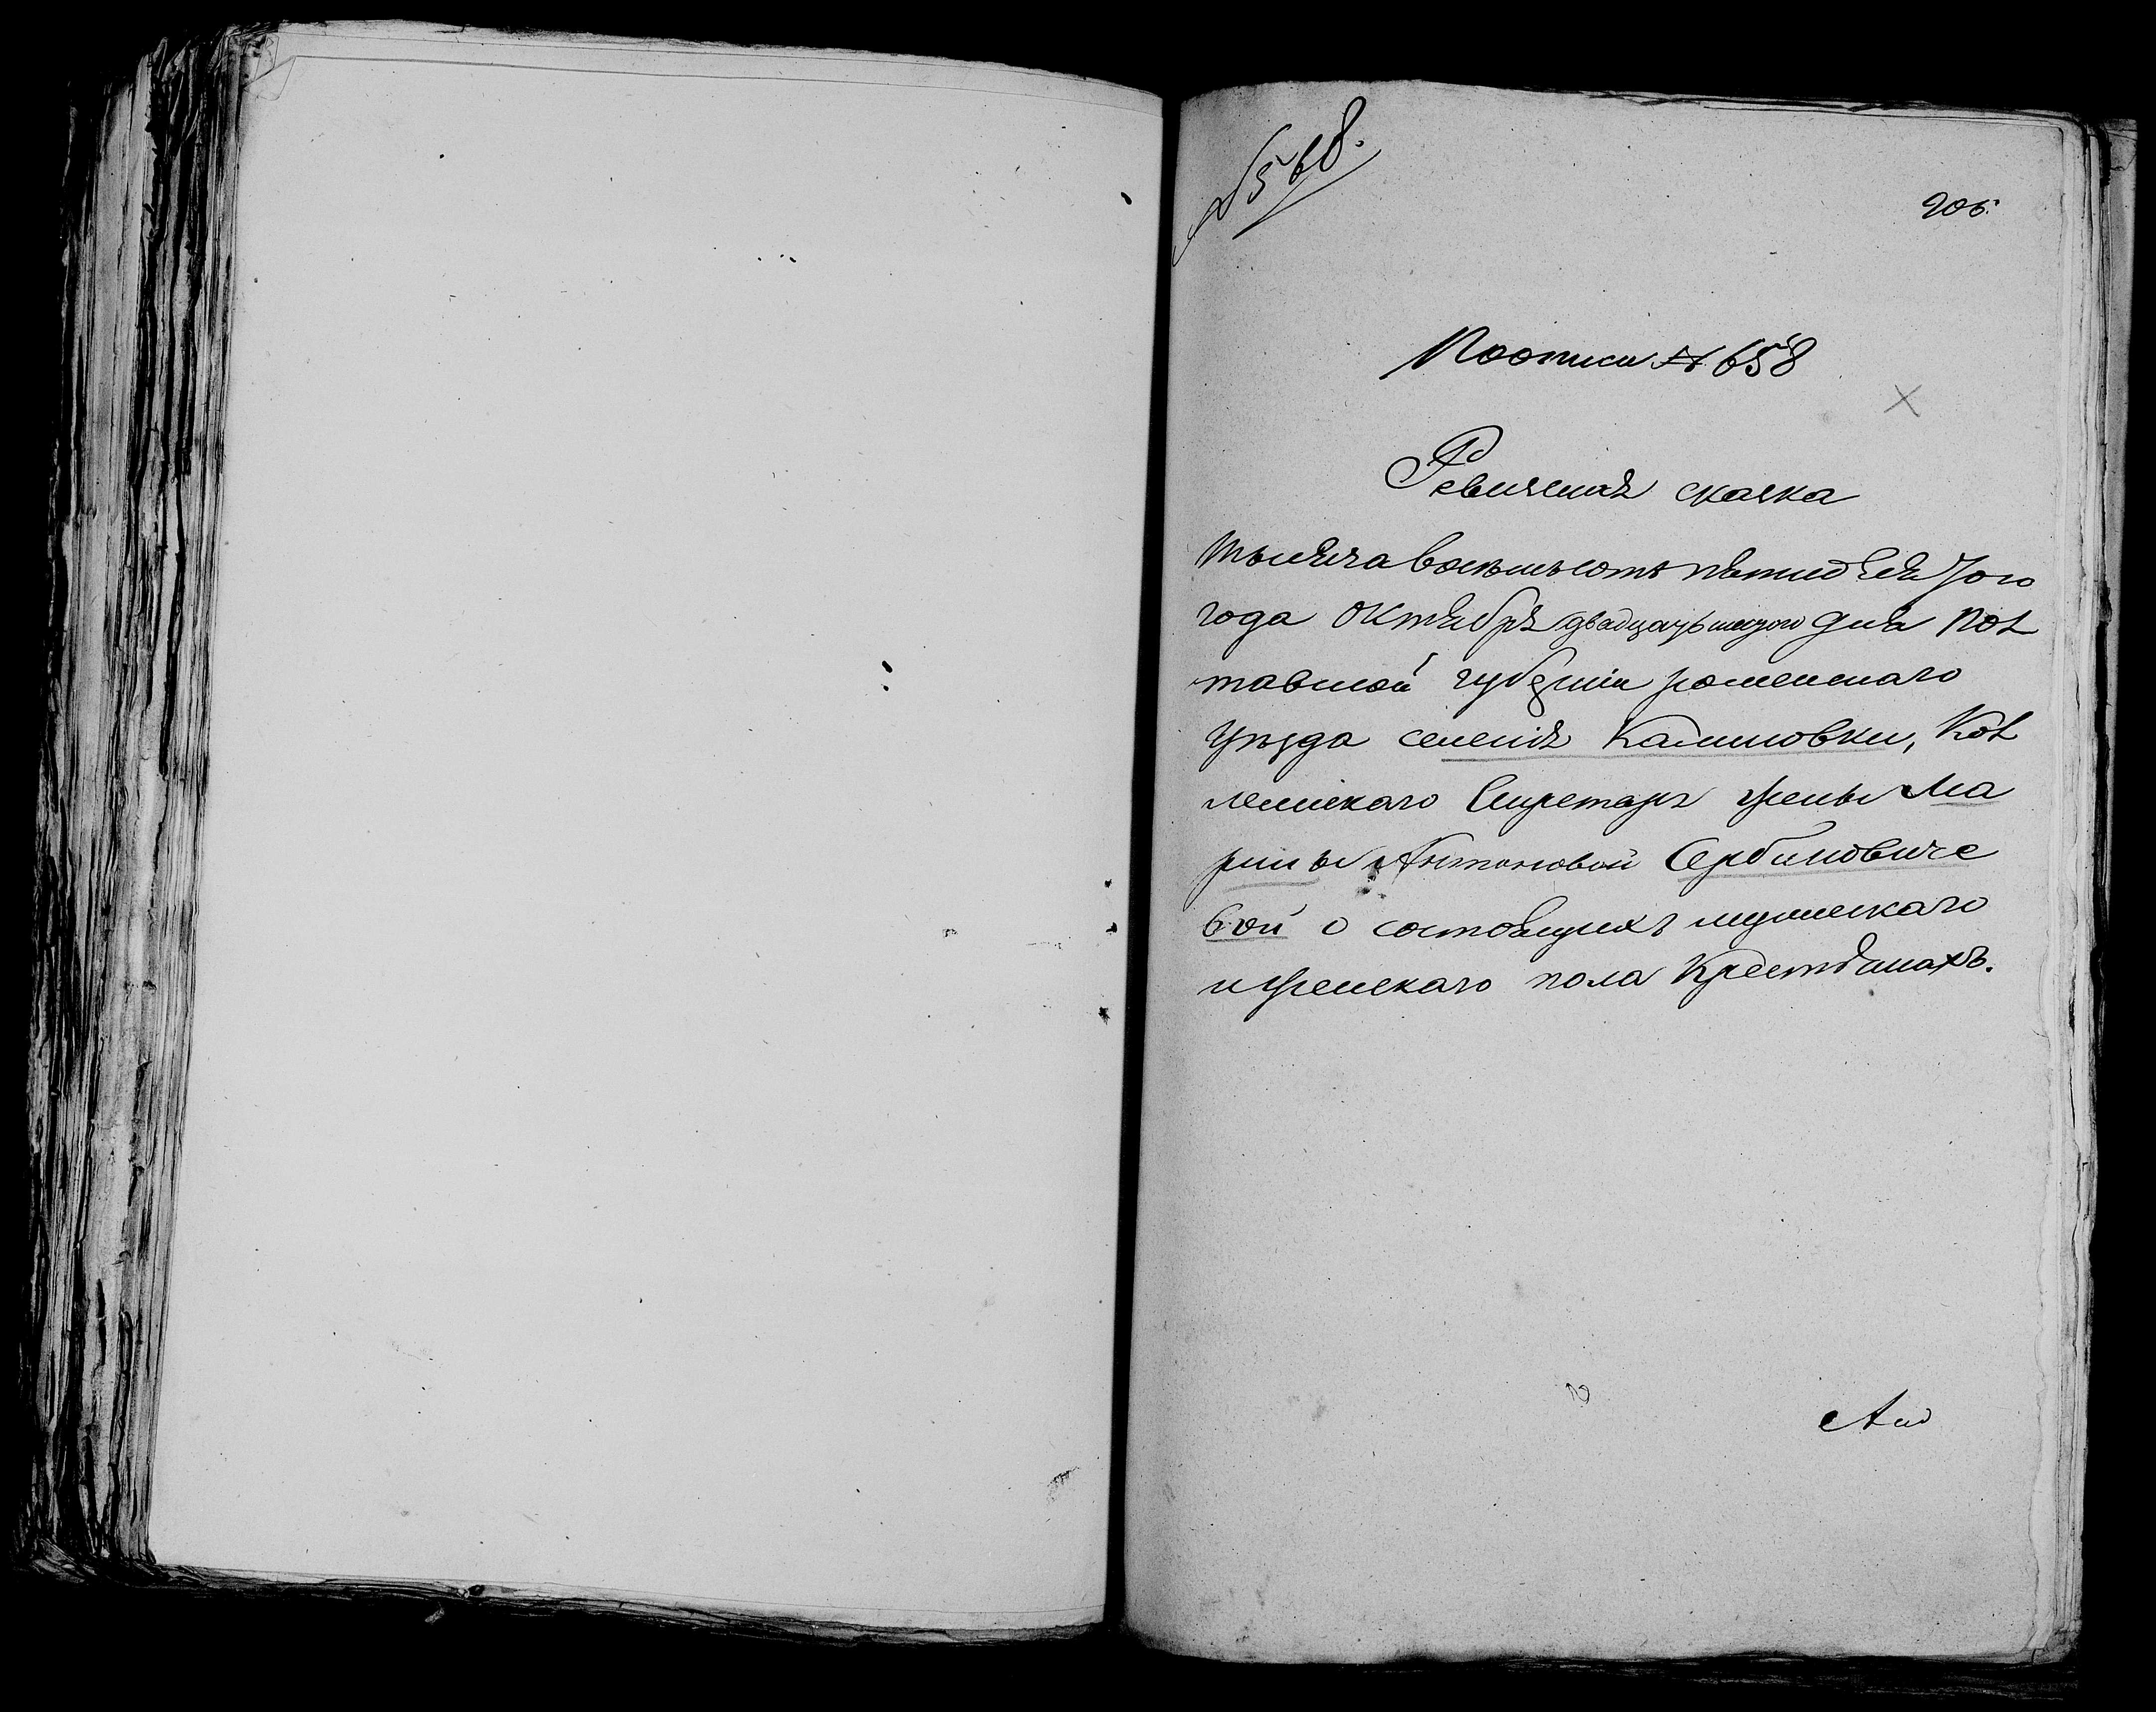 № 568.
206.
По описи № 658
Ревизская сказка
тысяча восемьсотъ пятидесятого
года Октября двадцать шестого дня Пол
тавской губерніи роменскаго
уѣзда селенія Калиновки, Кол
лежскаго Секретаря жены Ма
рины Антоновой Сербиновиче
вой о состоящихъ мужескаго
и женскаго пола Крестьянахъ.